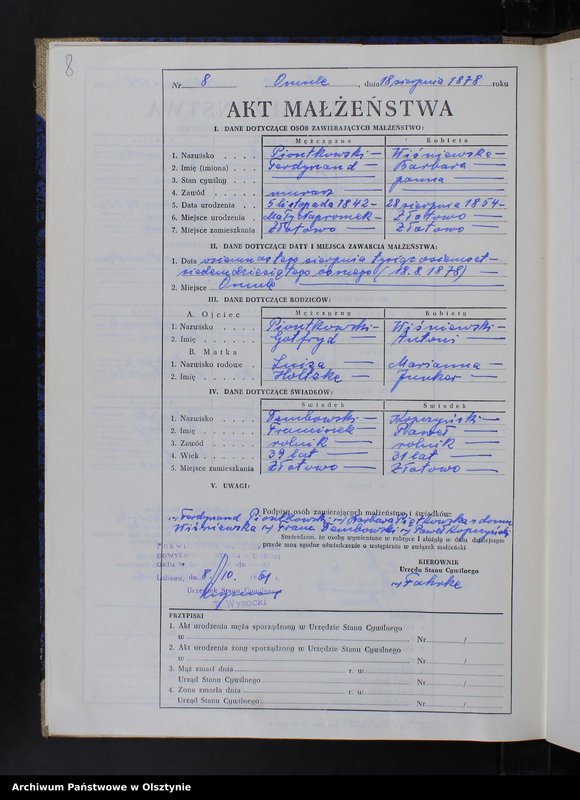 8
Nr 8 Omule, dnia 18 sierpnia 1878 roku
AKT MAŁŻEŃSTWA
I. DANE DOTYCZĄCE OSÓB ZAWIERAJĄCYCH MAŁŻEŃSTWO:
Mężczyzna Kobieta
1. Nazwisko . . . . Piontkowski Wiśniewska
2. Imię (imiona) . . . Ferdynand Barbara
3. Stan cywilny . . . panna
4. Zawód . . . . . murarz
5. Data urodzenia . . 5 listopada 1842 28 sierpnia 1854
6. Miejsce urodzenia . Mały Napromek Złotowo
7. Miejsce zamieszkania Złotowo Złotowo
II. DANE DOTYCZĄCE DATY I MIEJSCA ZAWARCIA MAŁŻEŃSTWA:
1. Data osiemnastego sierpnia tysiąc osiemset
siedemdziesiątego ósmego (18.8.1878)
2. Miejsce Omule
III. DANE DOTYCZĄCE RODZICÓW:
Mężczyzny Kobiety
A. Ojciec
1. Nazwisko . . . . Piontkowski Wiśniewski
2. Imię . . . . . . Gotfryd Antoni
B. Matka
1. Nazwisko rodowe . Luiza Marianna
2. Imię . . . . . . Holtzke Junker
IV. DANE DOTYCZĄCE ŚWIADKÓW:
Świadek Świadek
1. Nazwisko . . . . Dembowski Kopczyński
2. Imię . . . . . . Franciszek Paweł
3. Zawód . . . . . rolnik rolnik
4. Wiek . . . . . . 39 lat 31 lat
5. Miejsce zamieszkania Złotowo Złotowo
V. UWAGI:
Podpisy osób zawierających małżeństwo i świadków:
Ferdynand Piontkowski Barbara Piątkowska z domu
Wiśniewska Franc. Dembowski Paweł Kopczyński
Stwierdzam, że osoby wymienione w rubryce I złożyły w dniu dzisiejszym
przede mną zgodne oświadczenie o wstąpieniu w związek małżeński
KIEROWNIK
Urzędu Stanu Cywilnego
Lubawa, dn. 8/10. 1961.
Urzędnik Stanu Cywilnego
Wysocki
PRZYPISKI
1. Akt urodzenia męża sporządzony w Urzędzie Stanu Cywilnego
w Nr /
2. Akt urodzenia żony sporządzony w Urzędzie Stanu Cywilnego
w Nr /
3. Mąż zmarł dnia r. w
Urząd Stanu Cywilnego Nr /
4. Żona zmarła dnia r. w
Urząd Stanu Cywilnego Nr /
Archiwum Państwowe w Olsztynie